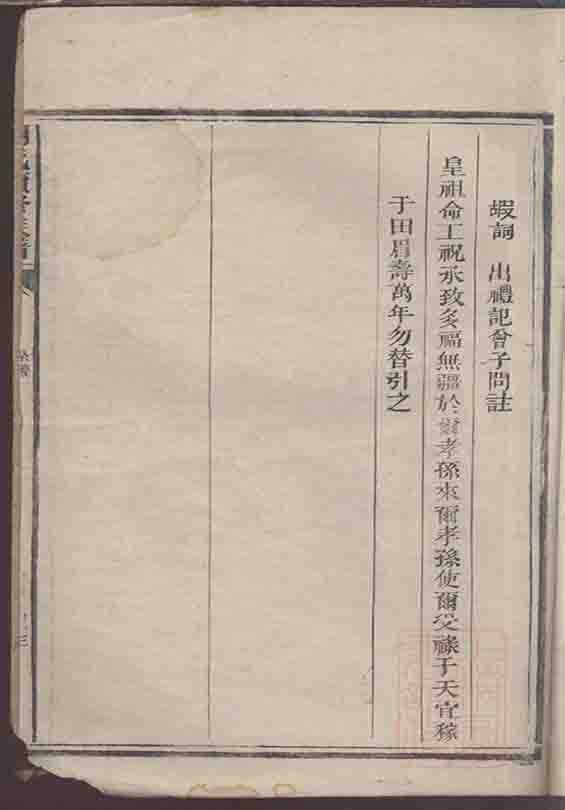 嘏詞 出禮記曾子問註
皇祖命工祝承致多福無疆於爾孝孫來爾孝孫使爾受祿于天宜稼
于田眉壽萬年勿替引之
祭禮
三